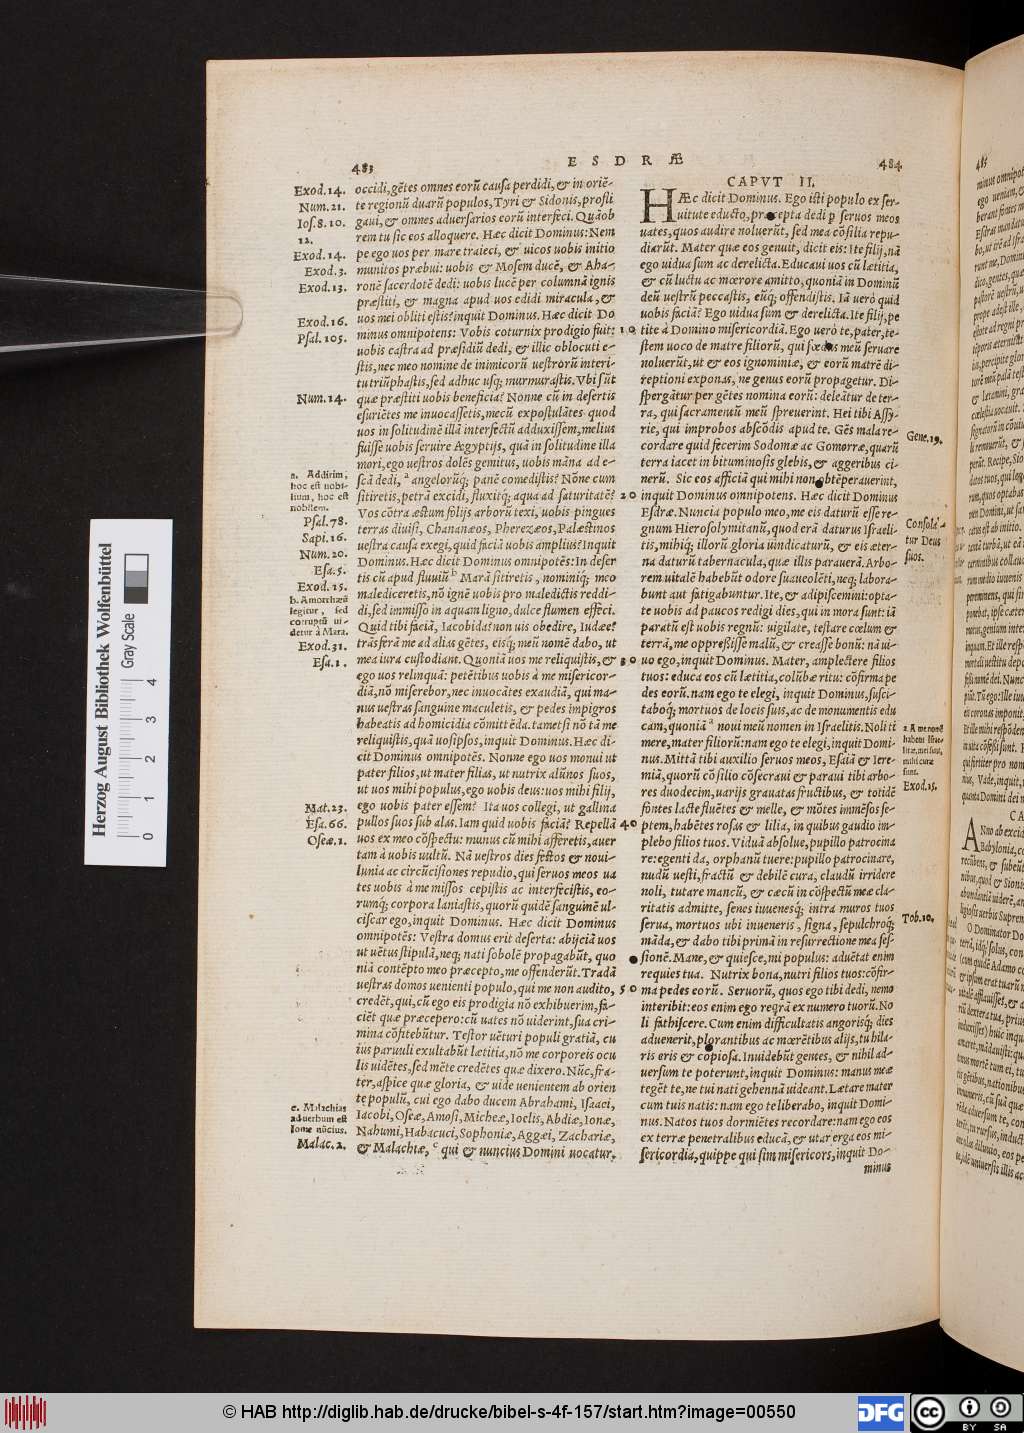 483
E S D R Æ
484
Exod. 14.
Num. 21.
Ios. 8. 10.
12.
Exod. 14.
Exod. 3.
Exod. 13.
Exod. 16.
Psal. 105.
Num. 14.
a. Addirim,
hoc est nobi-
lium, hoc est
nobilem.
Psal. 78.
Sapi. 16.
Num. 20.
Esa. 5.
Exod. 15.
b. Amorrhæũ
legitur, sed
corruptũ ui-
detur à Mara.
Exod. 31.
Esa. 1.
Mat. 23.
Esa. 66.
Oseæ. 1.
c. Malachias
aduerbum est
Ionæ nũcius.
Malac. 2.
occidi, gẽtes omnes eorũ causa perdidi, & in oriẽ-
te regionũ duarũ populos, Tyri & Sidonis, profli
gaui, & omnes aduersarios eorũ interfeci. Quãob
rem tu sic eos alloquere. Hæc dicit Dominus: Nem
pe ego uos per mare traieci, & uicos uobis initio
munitos præbui: uobis & Mosem ducẽ, & Aha-
ronẽ sacerdotẽ dedi: uobis lucẽ per columnã ignis
præstiti, & magna apud uos edidi miracula, &
uos mei obliti estis? inquit Dominus. Hæc dicit Do
minus omnipotens: Vobis coturnix prodigio fuit:
uobis castra ad præsidiũ dedi, & illic oblocuti e-
stis, nec meo nomine de inimicorũ uestrorũ interi-
tu triũphastis, sed adhuc usq; murmurastis. Vbi sũt
quæ præstiti uobis beneficia? Nonne cũ in desertis
esuriẽtes me inuocassetis, mecũ expostulãtes quod
uos in solitudinẽ illã interfectũ adduxissem, melius
fuisse uobis seruire Ægyptijs, quã in solitudine illa
mori, ego uestros dolẽs gemitus, uobis mãna ad e-
scã dedi, a angelorũq; panẽ comedistis? Nõne cum
sitiretis, petrã excidi, fluxitq; aqua ad saturitatẽ?
Vos cõtra æstum folijs arborũ texi, uobis pingues
terras diuisi, Chananæos, Pherezæos, Palæstinos
uestra causa exegi, quid faciã uobis amplius? Inquit
Dominus. Hæc dicit Dominus omnipotẽs: In deser
tis cũ apud fluuiũ b Marã sitiretis, nominiq; meo
malediceretis, nõ ignẽ uobis pro maledictis reddi-
di, sed immisso in aquam ligno, dulce flumen effeci.
Quid tibi faciã, Iacobida? non uis obedire, Iudæe?
trãsferã me ad alias gẽtes, eisq; meũ nomẽ dabo, ut
mea iura custodiant. Quoniã uos me reliquistis, &
ego uos relinquã: petẽtibus uobis à me misericor-
diã, nõ miserebor, nec inuocãtes exaudiã, qui ma-
nus uestras sanguine maculetis, & pedes impigros
habeatis ad homicidia cõmittẽda. tametsi nõ tã me
reliquistis, quã uosipsos, inquit Dominus. Hæc di-
cit Dominus omnipotẽs. Nonne ego uos monui ut
pater filios, ut mater filias, ut nutrix alũnos suos,
ut uos mihi populus, ego uobis deus: uos mihi filij,
ego uobis pater essem? Ita uos collegi, ut gallina
pullos suos sub alas. Iam quid uobis faciã? Repellã
uos ex meo cõspectu: munus cũ mihi afferetis, auer
tam à uobis uultũ. Nã uestros dies festos & noui-
lunia ac circũcisiones repudio, qui seruos meos ua
tes uobis à me missos cepistis ac interfecistis, eo-
rumq; corpora laniastis, quorũ quidẽ sanguinẽ ul-
ciscar ego, inquit Dominus. Hæc dicit Dominus
omnipotẽs: Vestra domus erit deserta: abijciã uos
ut uẽtus stipulã, neq; nati sobolẽ propagabũt, quo
niã contẽpto meo præcepto, me offenderũt. Tradã
uestras domos uenienti populo, qui me non audito,
credẽt, qui, cũ ego eis prodigia nõ exhibuerim, fa-
ciẽt quæ præcepero: cũ uates nõ uiderint, sua cri-
mina cõfitebũtur. Testor uẽturi populi gratiã, cu
ius paruuli exultabũt lætitia, nõ me corporeis ocu
lis uidẽtes, sed mẽte credẽtes quæ dixero. Nũc, fra-
ter, aspice quæ gloria, & uide uenientem ab orien
te populũ, cui ego dabo ducem Abrahami, Isaaci,
Iacobi, Oseæ, Amosi, Micheæ, Ioelis, Abdiæ, Ionæ,
Nahumi, Habacuci, Sophoniæ, Aggæi, Zachariæ,
& Malachiæ, c qui & nuncius Domini uocatur.
10
20
30
40
50
CAPVT II.
HÆc dicit Dominus. Ego isti populo ex ser-
uitute educto, præcepta dedi p seruos meos
uates, quos audire noluerũt, sed mea cõsilia repu-
diarũt. Mater quæ eos genuit, dicit eis: Ite filij, nã
ego uidua sum ac derelicta. Educaui uos cũ lætitia,
& cũ luctu ac mœrore amitto, quoniã in Dominũ
deũ uestrũ peccastis, eũq; offendistis. Iã uerò quid
uobis faciã? Ego uidua sum & derelicta. Ite filij, pe
tite à Domino misericordiã. Ego uerò te, pater, te-
stem uoco de matre filiorũ, qui fœdus meũ seruare
noluerũt, ut & eos ignominiæ, & eorũ matrẽ di-
reptioni exponas, ne genus eorũ propagetur. Di-
spergãtur per gẽtes nomina eorũ: deleãtur de ter-
ra, qui sacramentũ meũ spreuerint. Hei tibi Assy-
rie, qui improbos abscõdis apud te. Gẽs mala re-
cordare quid fecerim Sodomæ ac Gomorræ, quarũ
terra iacet in bituminosis glebis, & aggeribus ci-
nerũ. Sic eos afficiã qui mihi non obtẽperauerint,
inquit Dominus omnipotens. Hæc dicit Dominus
Esdræ. Nuncia populo meo, me eis daturũ esse re-
gnum Hierosolymitanũ, quod erã daturus Israeli-
tis, mihiq; illorũ gloriã uindicaturũ, & eis æter-
na daturũ tabernacula, quæ illis paraueram. Arbo-
rem uitalẽ habebũt odore suaueolẽti, neq; labora-
bunt aut fatigabuntur. Ite, & adipiscemini: opta-
te uobis ad paucos redigi dies, qui in mora sunt: iã
paratũ est uobis regnũ: uigilate, testare cœlum &
terrã, me oppressisse malũ, & creasse bonũ: nã ui-
uo ego, inquit Dominus. Mater, amplectere filios
tuos: educa eos cũ lætitia, colũbæ ritu: cõfirma pe
des eorũ. nam ego te elegi, inquit Dominus, susci-
taboq; mortuos de locis suis, ac de monumentis edu
cam, quoniã a noui meũ nomen in Israelitis. Noli ti
mere, mater filiorũ: nam ego te elegi, inquit Domi-
nus. Mittã tibi auxilio seruos meos, Esaiã & Iere-
miã, quorũ cõsilio cõsecraui & paraui tibi arbo-
res duodecim, uarijs grauatas fructibus, & totidẽ
fontes lacte fluẽtes & melle, & mõtes immẽsos se-
ptem, habẽtes rosas & lilia, in quibus gaudio im-
plebo filios tuos. Viduã absolue, pupillo patrocina
re: egenti da, orphanũ tuere: pupillo patrocinare,
nudũ uesti, fractũ & debilẽ cura, claudũ irridere
noli, tutare mancũ, & cæcũ in cõspectũ meæ cla-
ritatis admitte, senes iuuenesq; intra muros tuos
serua, mortuos ubi inueneris, signa, sepulchroq;
mãda, & dabo tibi primã in resurrectione mea ses-
sionẽ. Mane, & quiesce, mi populus: aduẽtat enim
requies tua. Nutrix bona, nutri filios tuos: cõfir-
ma pedes eorũ. Seruorũ, quos ego tibi dedi, nemo
interibit: eos enim ego reqrã ex numero tuorũ. No
li fathiscere. Cum enim difficultatis angorisq; dies
aduenerit, plorantibus ac mœrẽtibus alijs, tu hila-
ris eris & copiosa. Inuidebũt gentes, & nihil ad-
uersum te poterunt, inquit Dominus: manus meæ
tegẽt te, ne tui nati gehennã uideant. Lætare mater
cum tuis natis: nam ego te liberabo, inquit Domi-
nus. Natos tuos dormiẽtes recordare: nam ego eos
ex terræ penetralibus educã, & utar erga eos mi-
sericordia, quippe qui sim misericors, inquit Do-
minus
Gene. 19.
Consola-
tur Deus
suos.
Exod. 15.
Tob. 10.
485
Herzog August Bibliothek Wolfenbüttel
Gray Scale
0 1 2 3 4
© HAB http://diglib.hab.de/drucke/bibel-s-4f-157/start.htm?image=00550
DFG
cc
BY SA